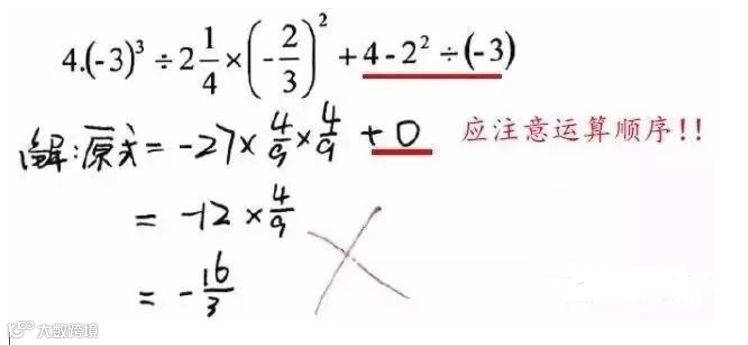 4.(-3)³ ÷ 2 1/4 × (-2/3)² + 4 - 2² ÷ (-3)
解:原式 = -27 × 4/9 × 4/9 + 0 应注意运算顺序!!
= -12 × 4/9
= -16/3
大数跨境